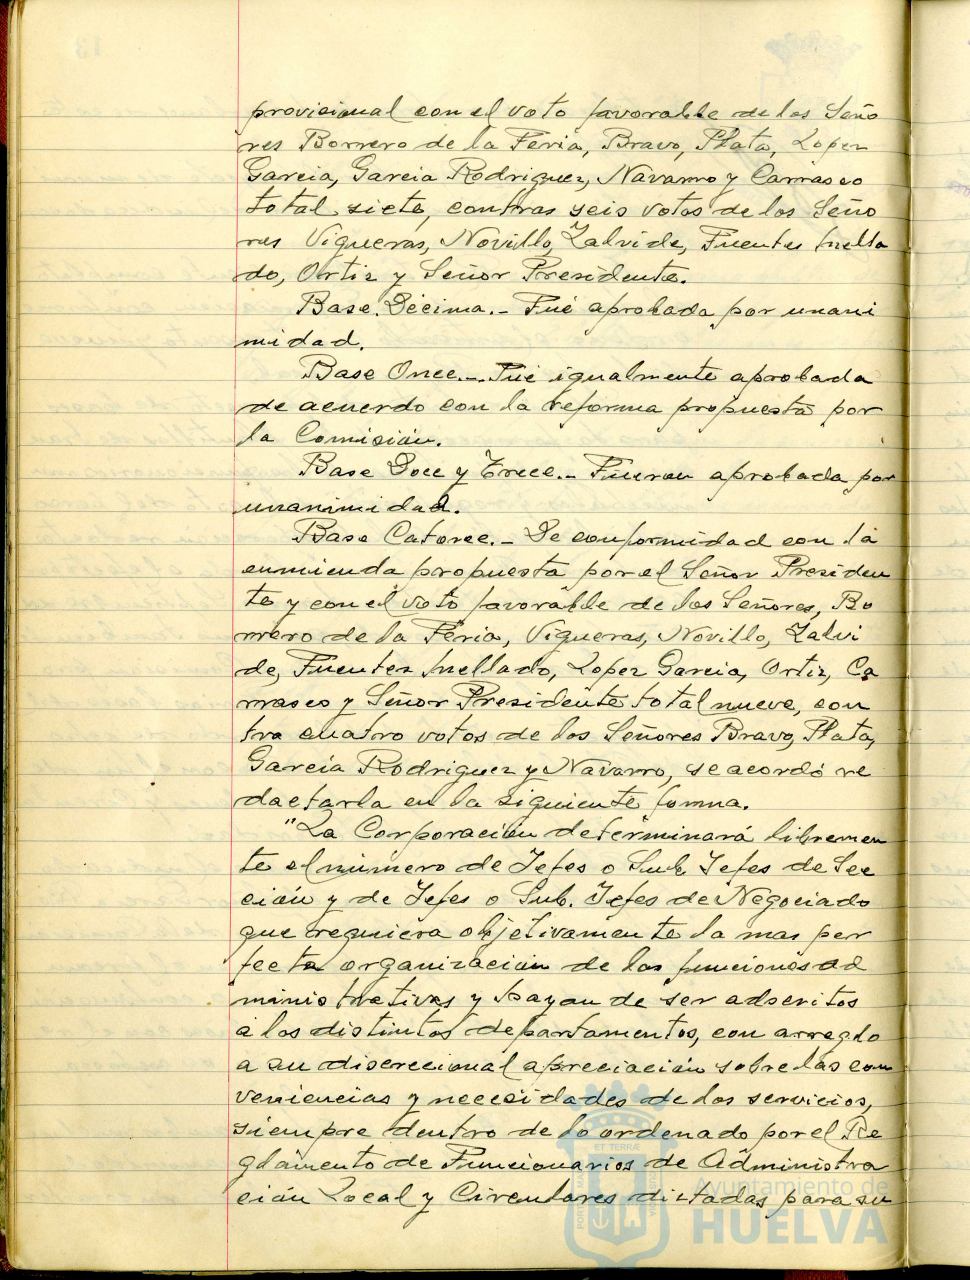 provisional con el voto favorable de los Seño
res Borrero de la Feria, Bravo, Plata, Lopez
Garcia, Garcia Rodriguez, Navarro y Carrasco
total siete, contras seis votos de los Seño
res Vigueras, Novillo, Zalvide, Fuentes Mella
do, Ortiz y Señor Presidente.
Base Décima.- Fué aprobada por unani
midad.
Base Once.- Fué igualmente aprobada
de acuerdo con la reforma propuesta por
la Comisión.
Base Doce y Trece.- Fueron aprobada por
unanimidad.
Base Catorce.- De conformidad con la
enmienda propuesta por el Señor Presiden
te y con el voto favorable de los Señores, Bo
rrero de la Feria, Vigueras, Novillo, Zalvi
de, Fuentes Mellado, Lopez Garcia, Ortiz, Ca
rrasco y Señor Presidente total nueve, con
tra cuatro votos de los Señores Bravo, Plata,
Garcia Rodriguez y Navarro, se acordó re
dactarla en la siguiente forma.
"La Corporación determinará libremen
te el número de Jefes o Sub. Jefes de Sec
ción y de Jefes o Sub. Jefes de Negociado
que requiera objetivamente la mas per
fecta organización de las funciones ad
ministrativas y hayan de ser adscritos
a los distintos departamentos, con arreglo
a su discrecional apreciación sobre las con
veniencias y necesidades de los servicios,
siempre dentro de lo ordenado por el Re
glamento de Funcionarios de Administra
ción Local y Circulares dictadas para su
Ayuntamiento de
HUELVA